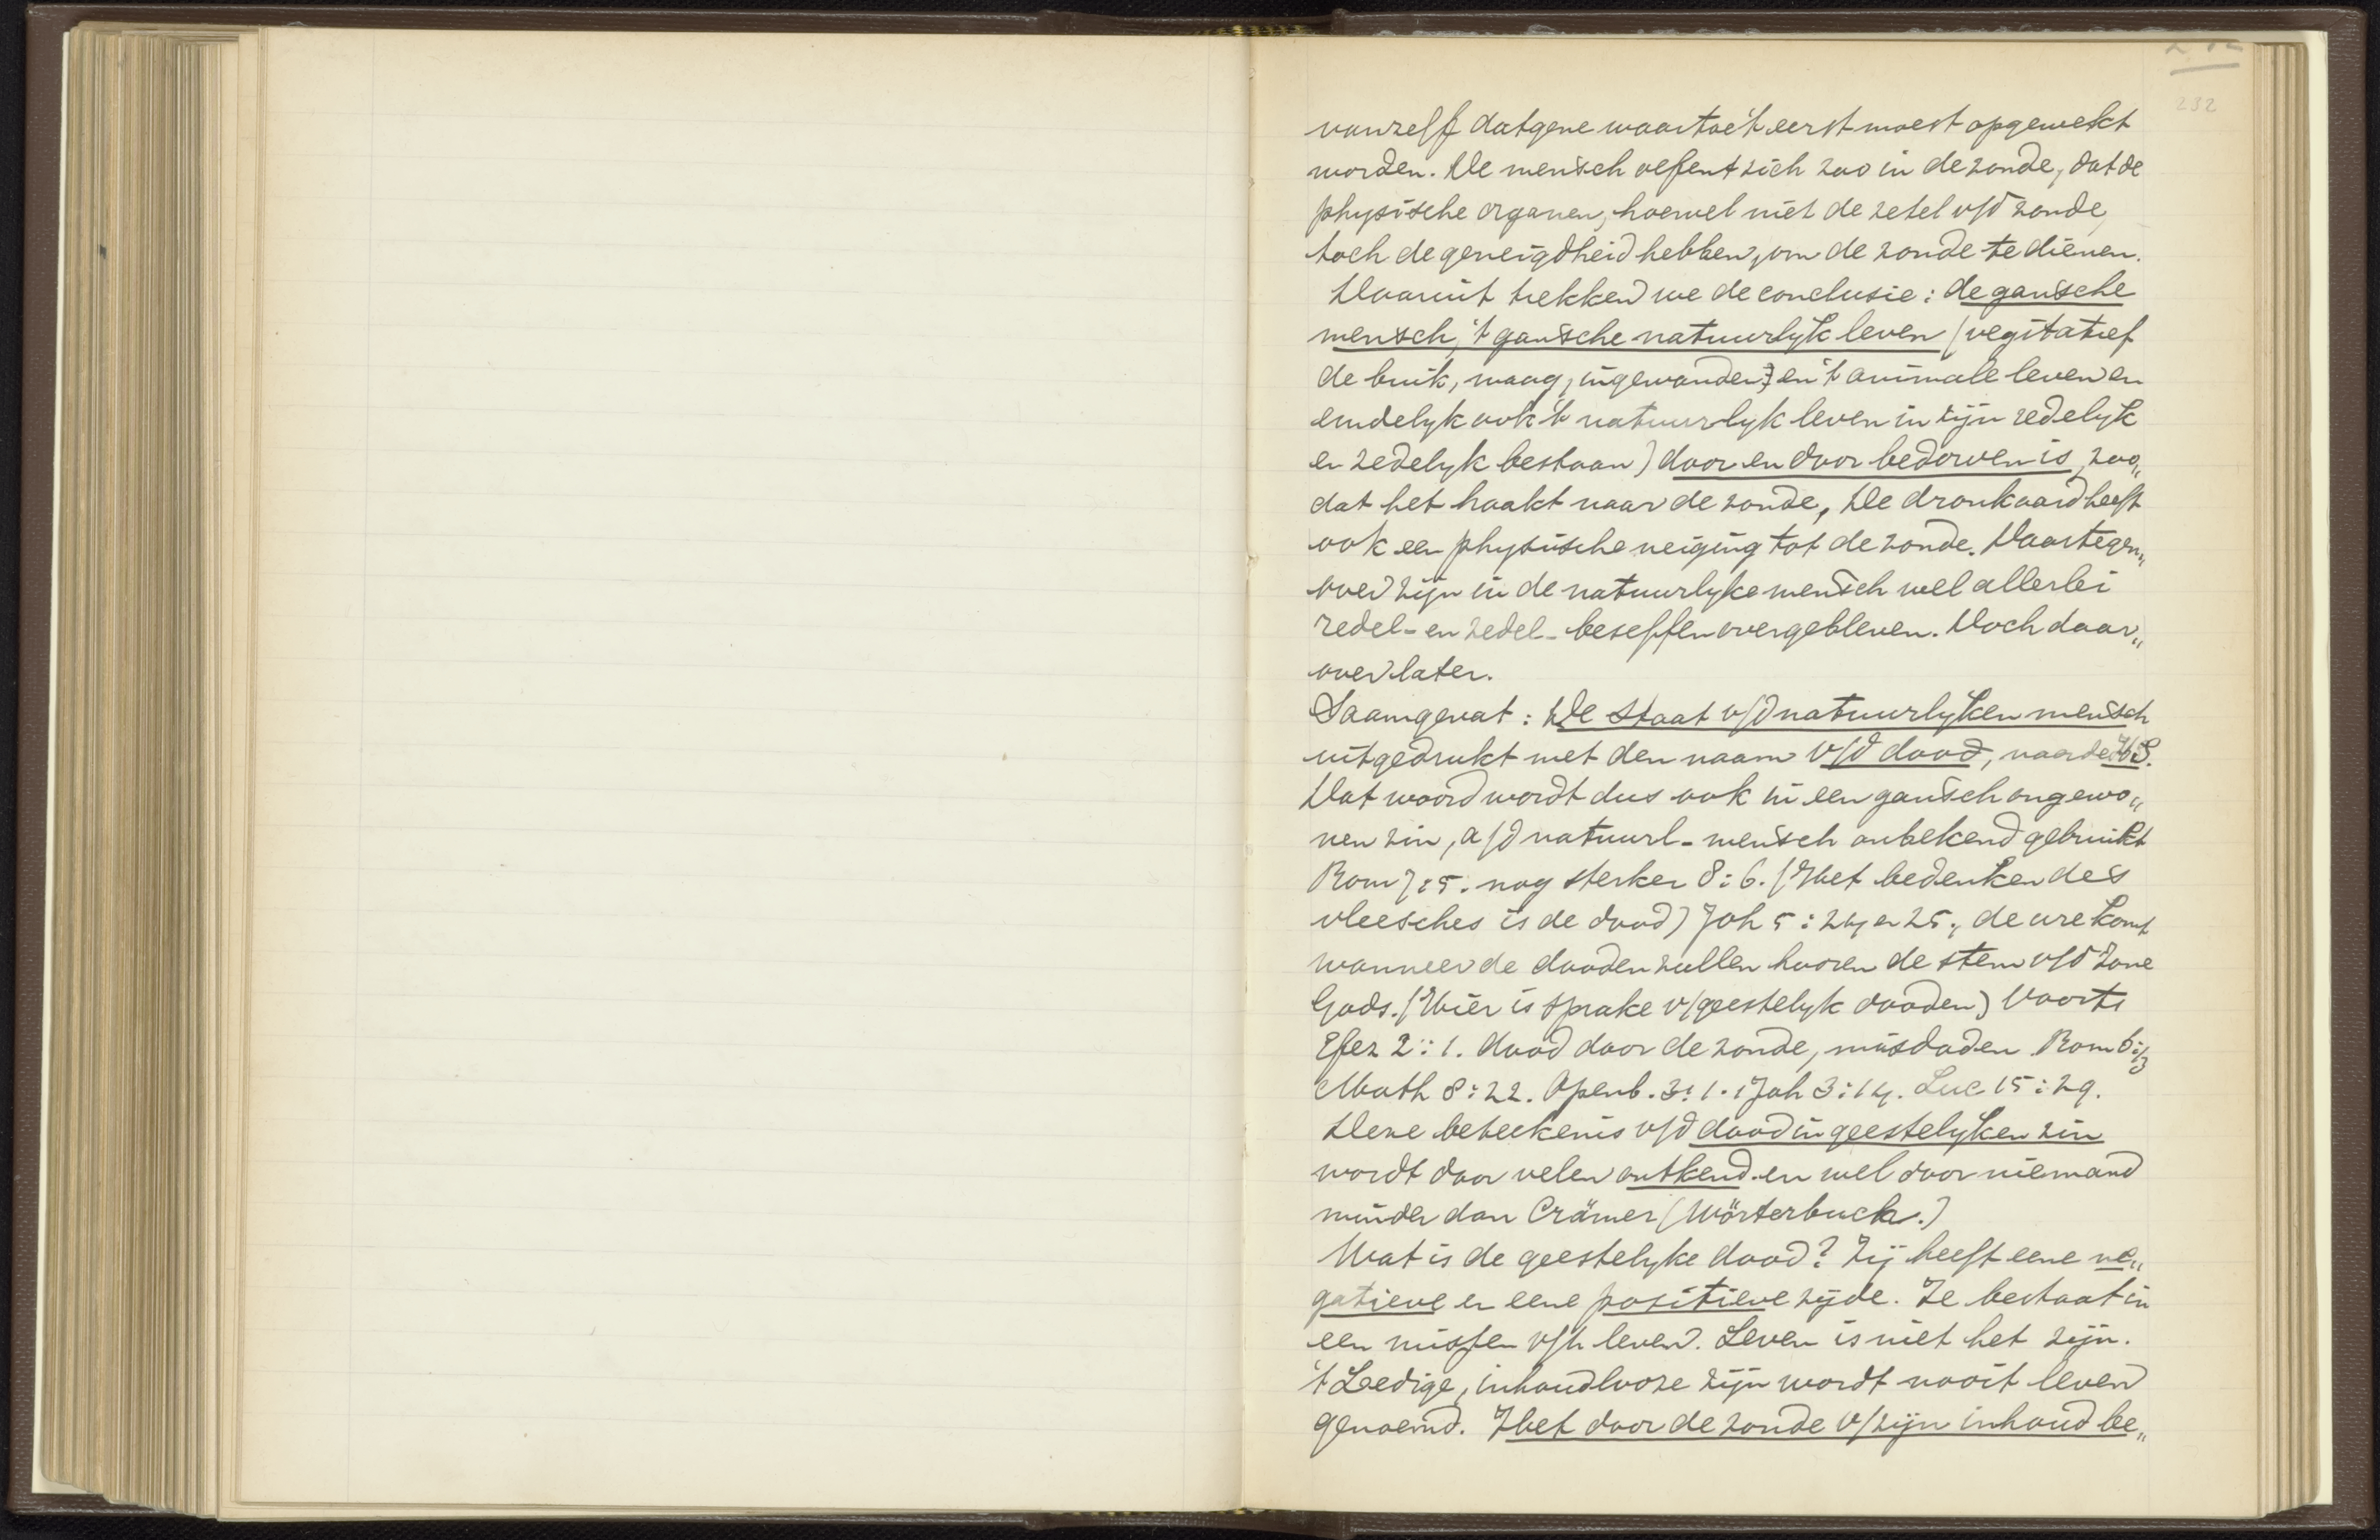 232
vanzelf datgene waartoe 't eerst moest opgewekt
worden. De mensch oefent zich zoo in de zonde, dat de
physische organen, hoewel niet de zetel v/d zonde,
toch de geneigdheid hebben, om de zonde te dienen.
Daaruit trekken we de conclusie: de gansche
mensch, 't gansche natuurlyk leven (vegitatief
de buik, maag, ingewanden) en 't animale leven en
eindelyk ook 't natuurlyk leven in zijn redelyk
en zedelyk bestaan) door en door bedorven is, zoo„
dat het haakt naar de zonde, De dronkaard heeft
ook een physische neiging tot de zonde. Daartegen„
over zijn in de natuurlyke mensch wel allerlei
redel- en zedel- beseffen overgebleven. Doch daar„
over later.
Saamgevat: De staat v/d natuurlyken mensch
uitgedrukt met den naam v/d dood, naar de H.S.
Dat woord wordt dus ook in een gansch ongewo„
nen zin, a/d natuurl- mensch onbekend gebruikt
Rom 7:5. nog sterker 8:6. (Het bedenken des
vleesches is de dood) Joh 5:24 en 25., de ure komt
wanneer de dooden zullen hooren de stem v/d Zone
Gods. (Hier is sprake v/geestelyk dooden) Voorts
Efez 2:1. dood door de zonde, misdaden Rom 6:13
Math 8:22. Openb. 3:1. 1 Joh 3:14. Luc 15:29.
Deze beteekenis v/d dood in geestelyken zin
wordt door velen ontkend en wel door niemand
minder dan Crämer (Wörterbuch.)
Wat is de geestelyke dood? Zij heeft eene ne„
gatieve en eene positieve zijde. Ze bestaat in
een missen v/h leven. Leven is niet het zijn.
't Ledige, inhoudlooze zijn wordt nooit leven
genoemd. Het door de zonde v/zijn inhoud be„